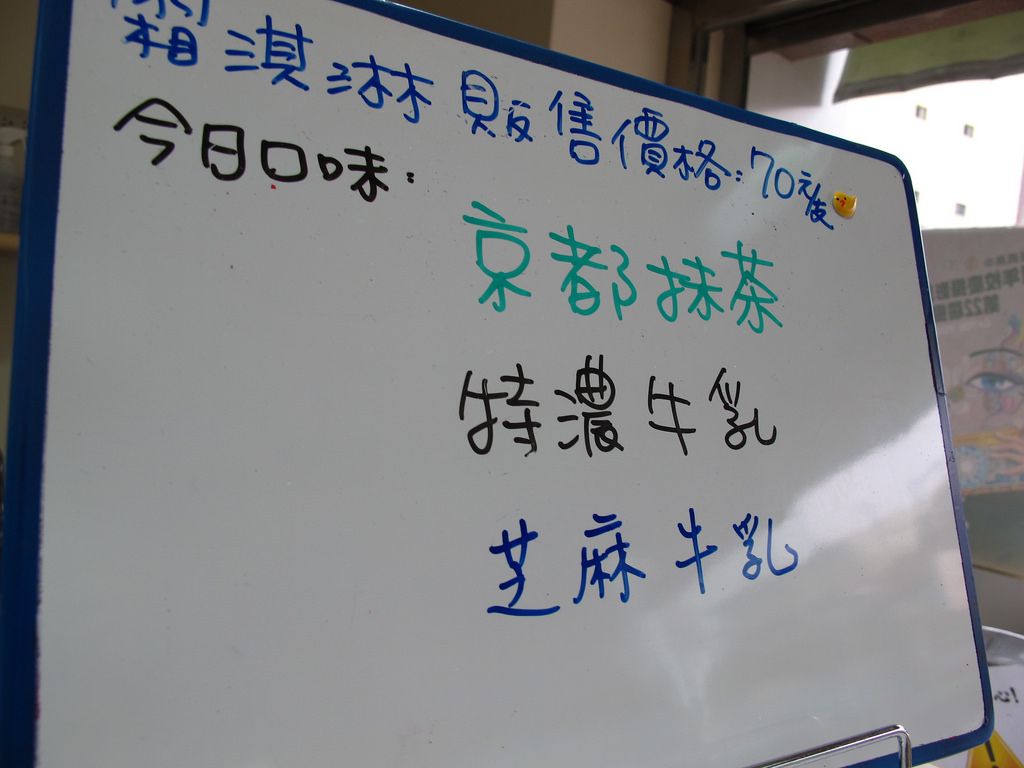 霜淇淋 販售價格:70元/支
今日口味:
京都抹茶
特濃牛乳
芝麻牛乳